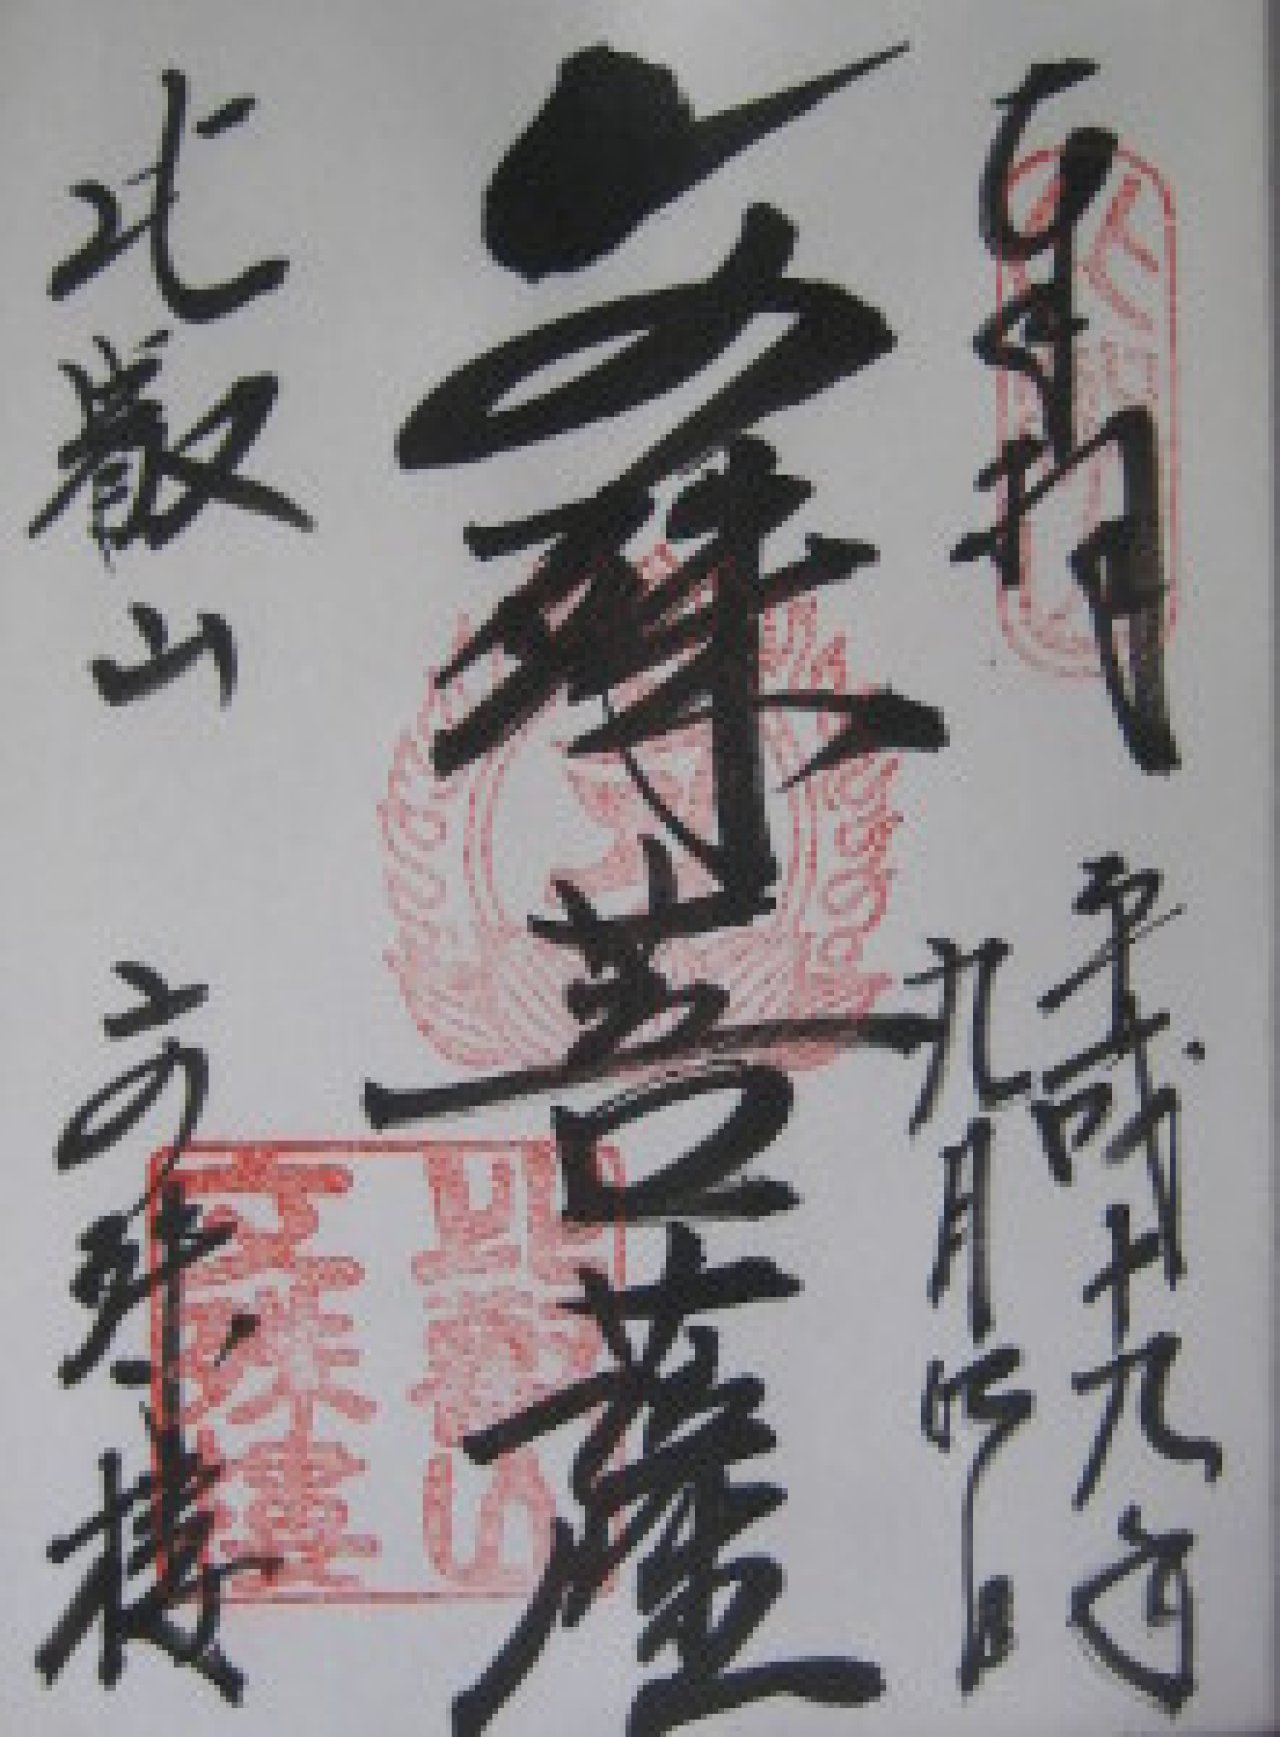 奉拝
平成十九年
九月 日
文殊菩薩
比叡山
文殊楼
比叡山
文殊楼